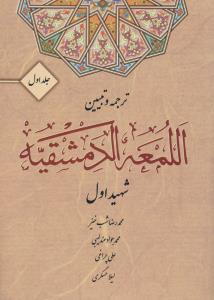 جلد اول
ترجمه و تبیین
اللمعه الدمشقیه
شهید اول
محمدرضا شب خیز
محمدجواد
علی چراغی
لیلا عسکری